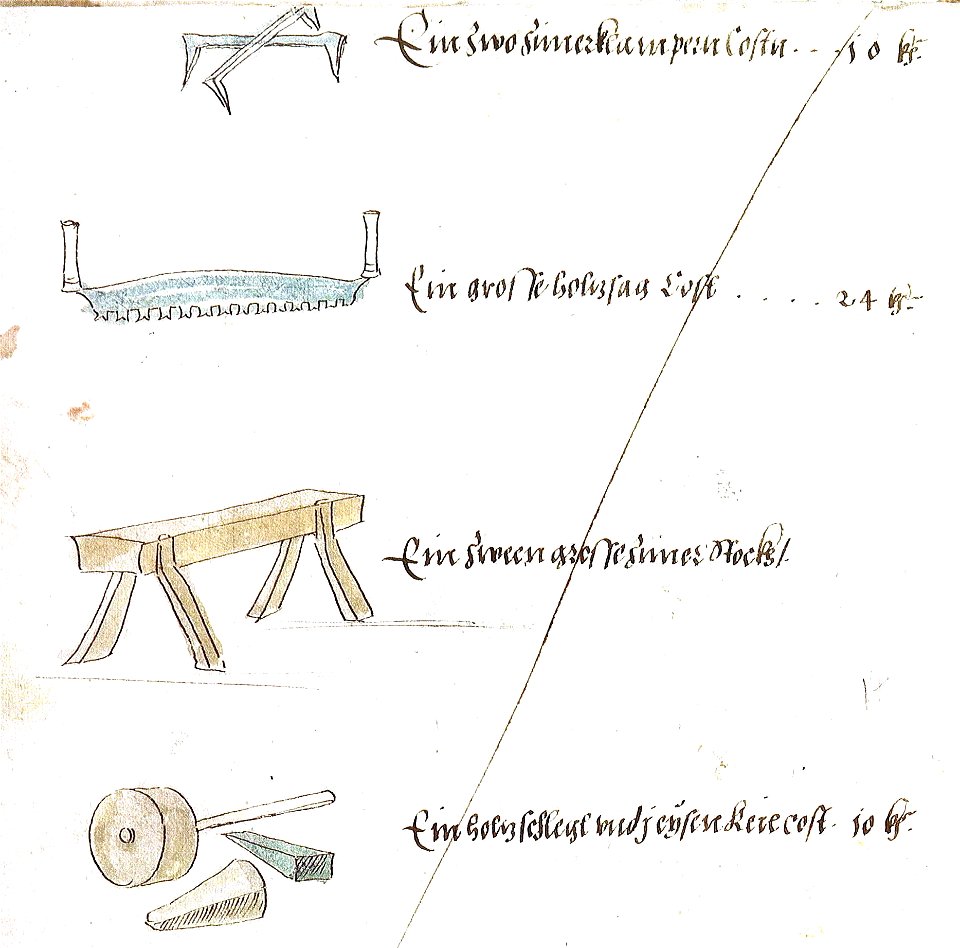 Ein zwo zimerkhampern Costn . . . 10 kr.
Ein grosse holzsag Cost . . . . . 24 kr.
Ein zween grosse zimer Stockh /.
Ein holzschlegl vnd j eÿsen Keie cost . 10 kr.